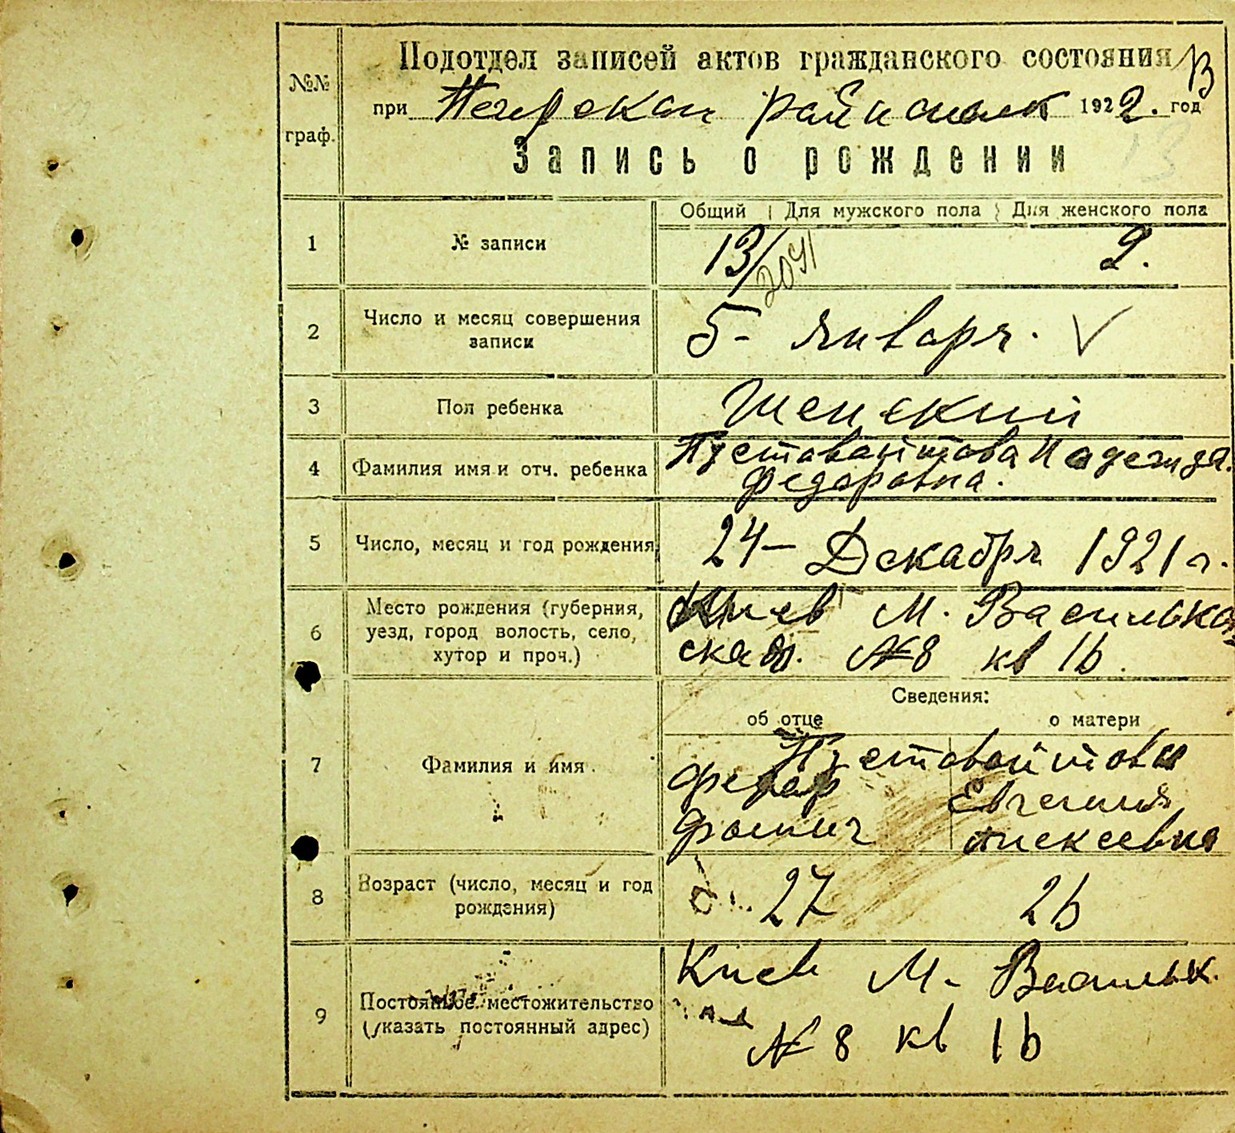 №№ граф.
Подотдел записей актов гражданского состояния
13
при Печерском райисполк 1922. год
Запись о рождении
Общий | Для мужского пола | Для женского пола
1 № записи 13/2041 9.
2 Число и месяц совершения записи
5- января. ✓
3 Пол ребенка Женский
4 Фамилия имя и отч. ребенка Пустовойтова Надежда.
Федоровна.
5 Число, месяц и год рождения 24 – Декабря 1921 г.
6 Место рождения (губерния, уезд, город волость, село, хутор и проч.)
Киев М. Васильков
ская. № 8 кв 16.
Сведения:
об отце о матери
7 Фамилия и имя
Пустовойтовы
Федор Евгения
Фомич Алексеевна
8 Возраст (число, месяц и год рождения)
27 26
9 Постоянное местожительство (указать постоянный адрес)
Киев М. Васильк.
№ 8 кв 16